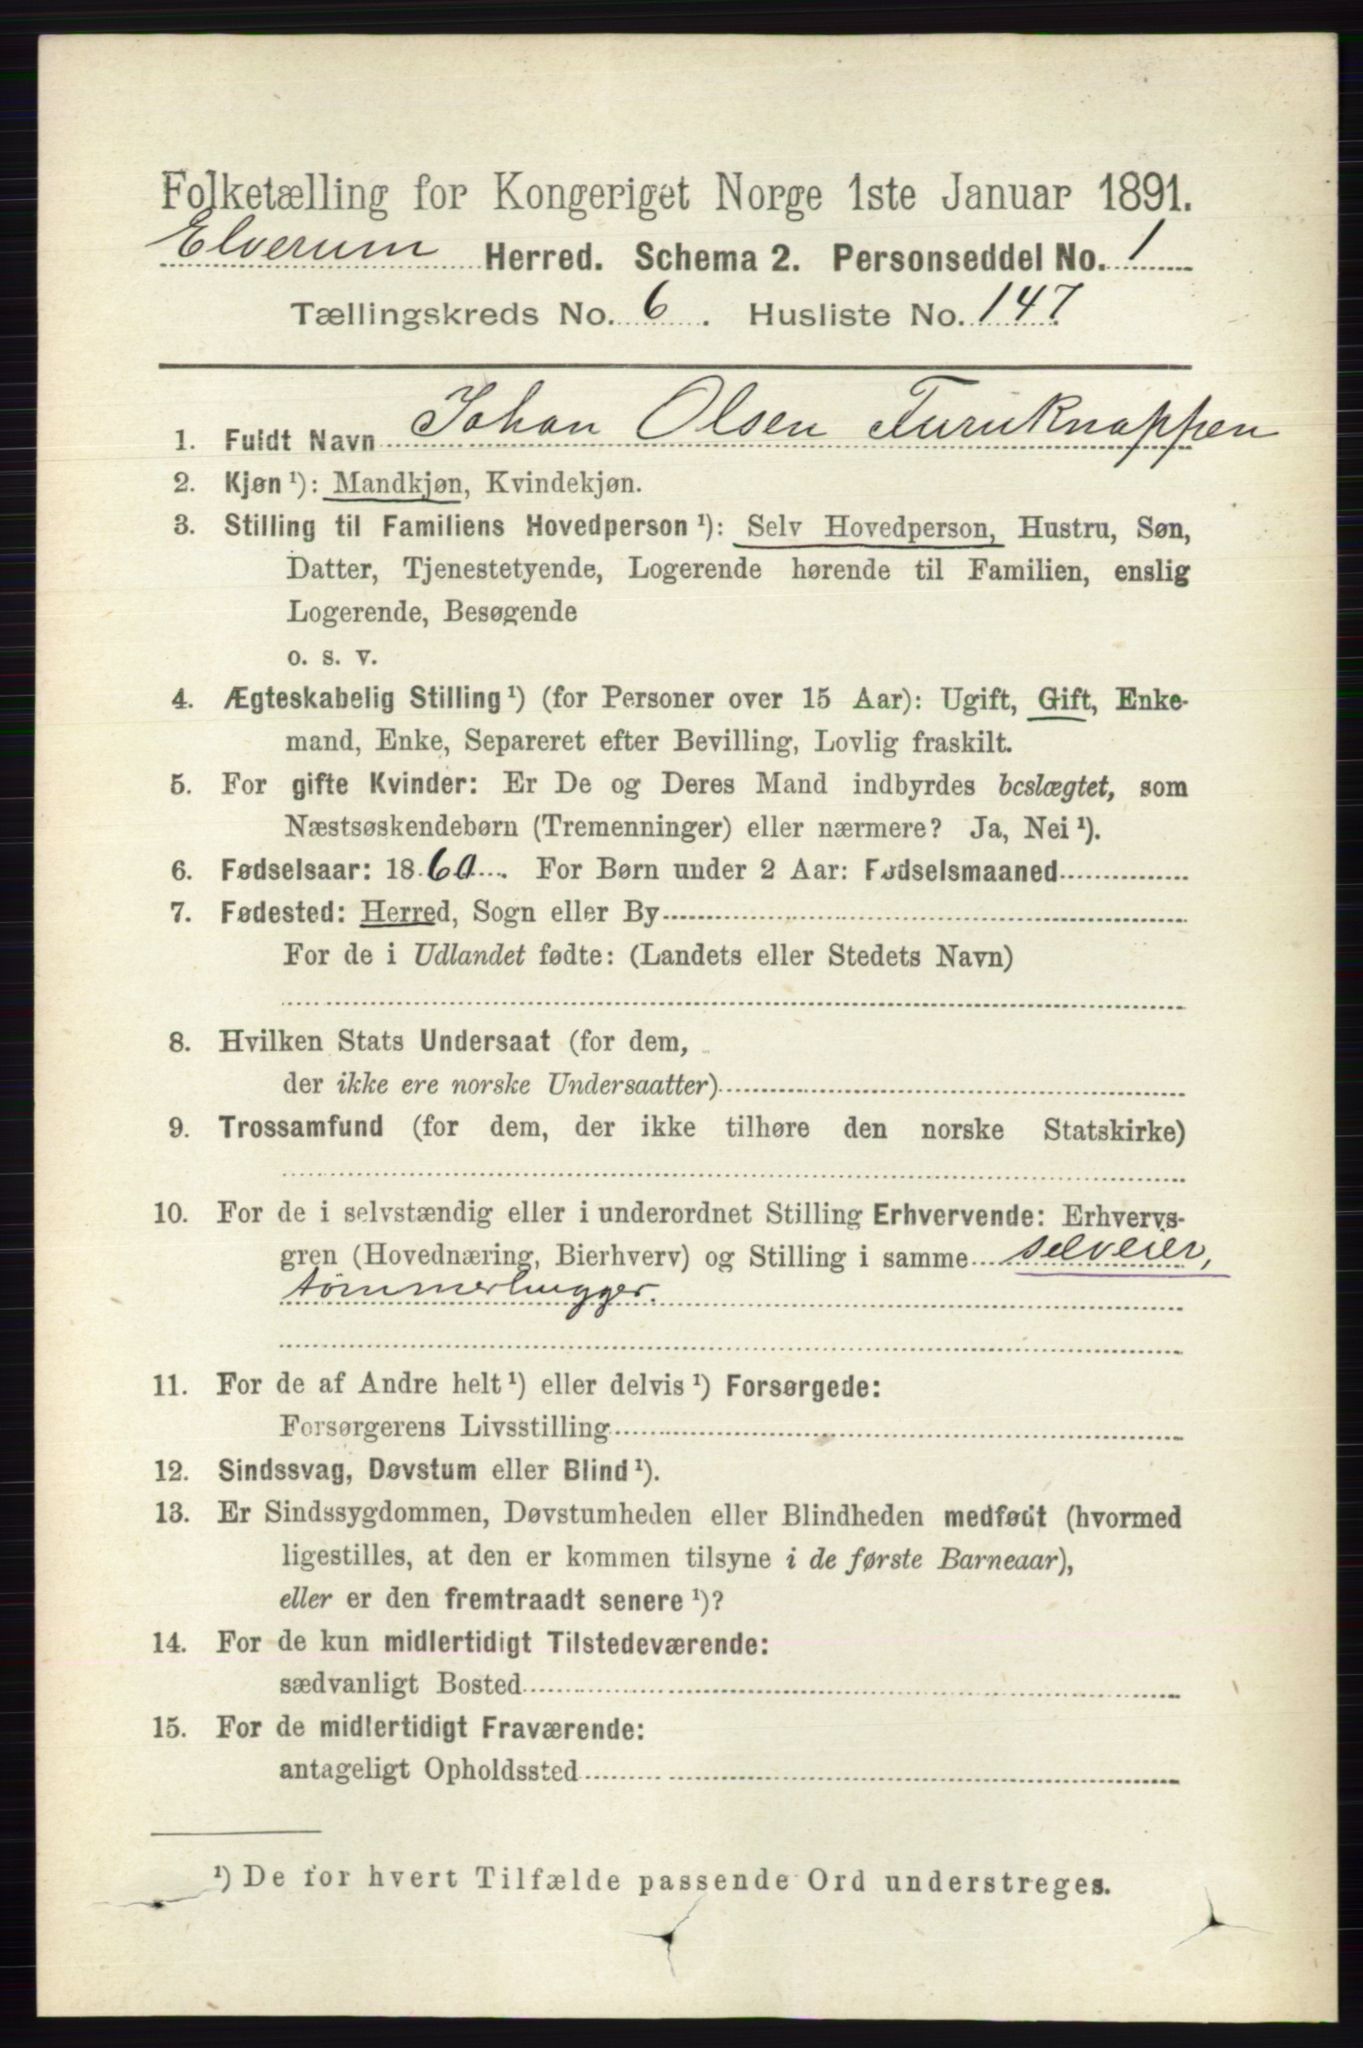 Folketælling for Kongeriget Norge 1ste Januar 1891.
Elverum Herred. Schema 2. Personseddel No. 1
Tællingskreds No. 6. Husliste No. 147.
1. Fuldt Navn Johan Olsen Furuknappen
2. Kjøn ¹): Mandkjøn, Kvindekjøn.
3. Stilling til Familiens Hovedperson ¹): Selv Hovedperson, Hustru, Søn,
Datter, Tjenestetyende, Logerende hørende til Familien, enslig
Logerende, Besøgende
o. s. v.
4. Ægteskabelig Stilling ¹) (for Personer over 15 Aar): Ugift, Gift, Enke-
mand, Enke, Separeret efter Bevilling, Lovlig fraskilt.
5. For gifte Kvinder: Er De og Deres Mand indbyrdes beslægtet, som
Næstsøskendebørn (Tremenninger) eller nærmere? Ja, Nei ¹).
6. Fødselsaar: 1860. For Børn under 2 Aar: Fødselsmaaned
7. Fødested: Herred, Sogn eller By
For de i Udlandet fødte: (Landets eller Stedets Navn)
8. Hvilken Stats Undersaat (for dem,
der ikke ere norske Undersaatter)
9. Trossamfund (for dem, der ikke tilhøre den norske Statskirke)
10. For de i selvstændig eller i underordnet Stilling Erhvervende: Erhvervs-
gren (Hovednæring, Bierhverv) og Stilling i samme selveier,
tømmerhugger.
11. For de af Andre helt ¹) eller delvis ¹) Forsørgede:
Forsørgerens Livsstilling
12. Sindssvag, Døvstum eller Blind ¹).
13. Er Sindssygdommen, Døvstumheden eller Blindheden medfødt (hvormed
ligestilles, at den er kommen tilsyne i de første Barneaar),
eller er den fremtraadt senere ¹)?
14. For de kun midlertidigt Tilstedeværende:
sædvanligt Bosted
15. For de midlertidigt Fraværende:
antageligt Opholdssted
¹) De for hvert Tilfælde passende Ord understreges.